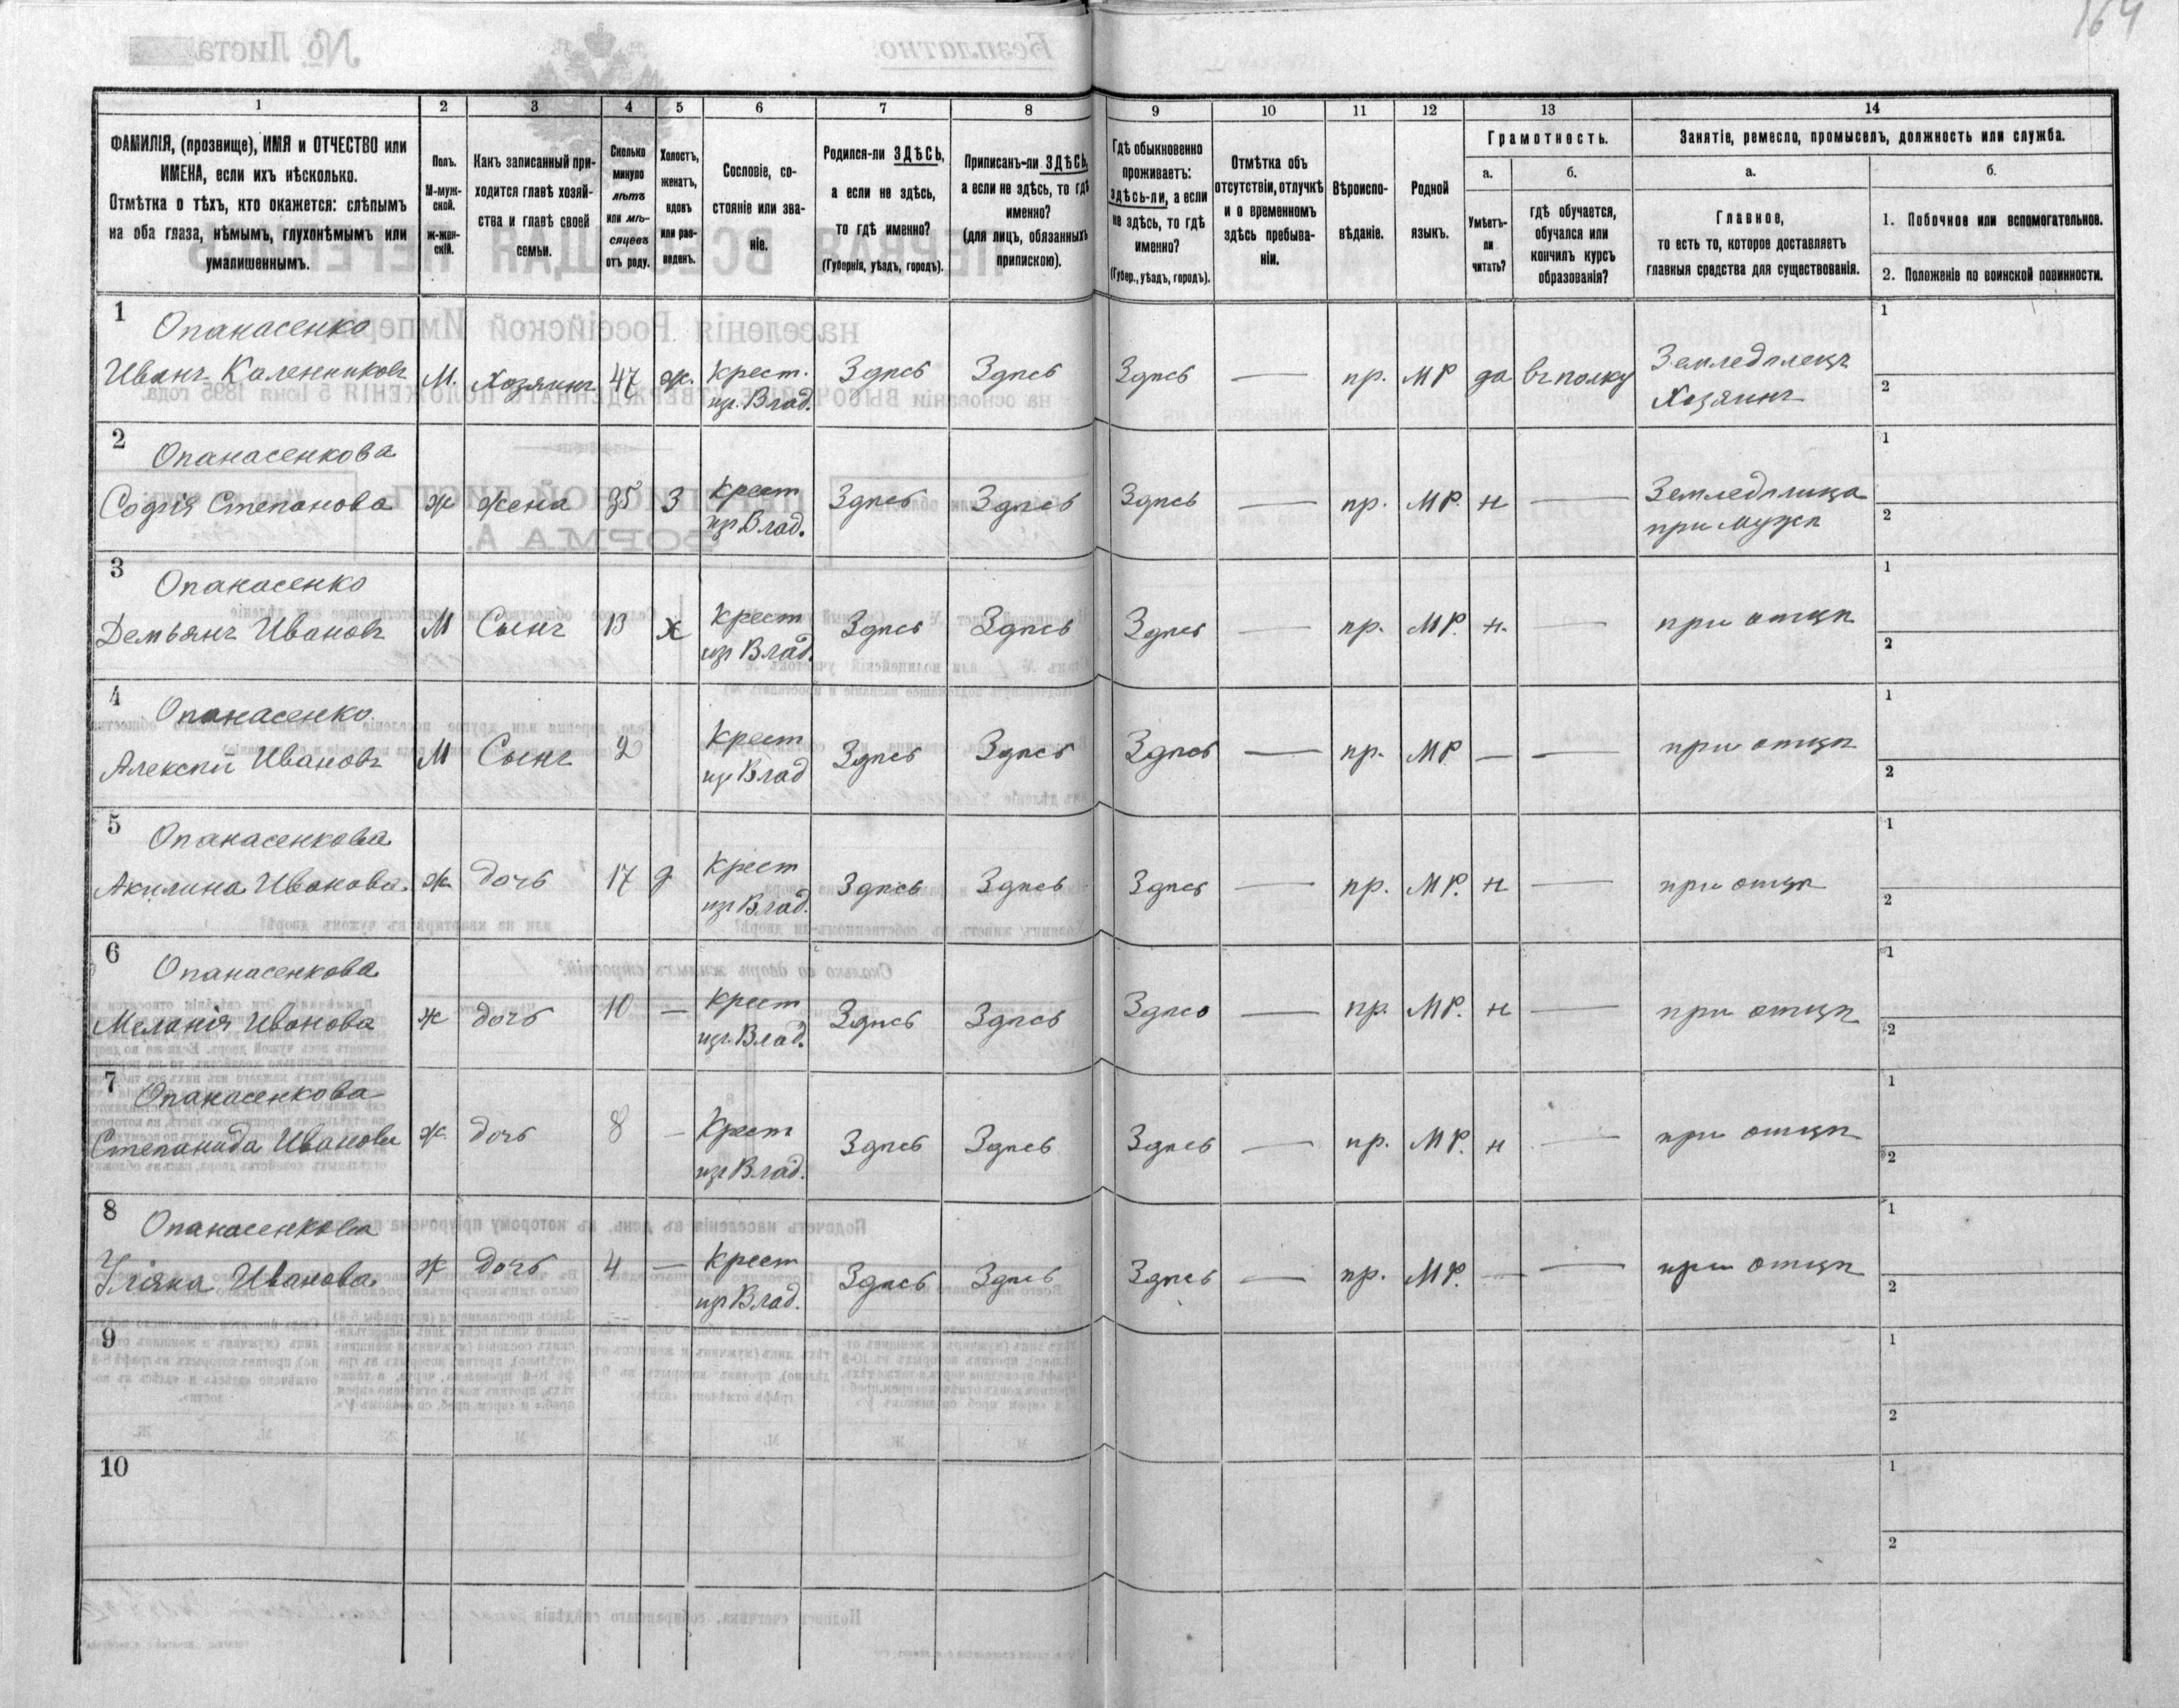 164
1 2 3 4 5 6 7 8 9 10 11 12 13 14
ФАМИЛІЯ, (прозвище), ИМЯ и ОТЧЕСТВО или
ИМЕНА, если ихъ нѣсколько.
Отмѣтка о тѣхъ, кто окажется: слѣпымъ
на оба глаза, нѣмымъ, глухонѣмымъ или
умалишеннымъ.
Полъ.
М-муж-
ской.
ж-жен-
скій.
Какъ записанный при-
ходится главѣ хозяй-
ства и главѣ своей
семьи.
Сколько
минуло
лѣтъ
или мѣ-
сяцевъ
отъ роду.
Холостъ,
женатъ,
вдовъ
или раз-
веденъ.
Сословіе, со-
стояніе или зва-
ніе.
Родился-ли ЗДѢСЬ,
а если не здѣсь,
то гдѣ именно?
(Губернія, уѣздъ, городъ).
Приписанъ-ли ЗДѢСЬ,
а если не здѣсь, то гдѣ
именно?
(для лицъ, обязанныхъ
припискою).
Гдѣ обыкновенно
проживаетъ:
здѣсь-ли, а если
не здѣсь, то гдѣ
именно?
(Губер., уѣздъ, городъ).
Отмѣтка объ
отсутствіи, отлучкѣ
и о временномъ
здѣсь пребыва-
ніи.
Вѣроиспо-
вѣданіе.
Родной
языкъ.
Грамотность.
а.
Умѣетъ-
ли
читать?
б.
гдѣ обучается,
обучался или
кончилъ курсъ
образованія?
Занятіе, ремесло, промыселъ, должность или служба.
а.
Главное,
то есть то, которое доставляетъ
главныя средства для существованія.
б.
1. Побочное или вспомогательное.
2. Положеніе по воинской повинности.
1 Опанасенко
Иванъ Каленниковъ М. Хозяинъ 47 ж. Крест. Здѣсь Здѣсь Здѣсь — пр. МР да въ полку Земледѣлецъ 1
из. Влад. Хозяинъ 2
2 Опанасенкова
Софія Степанова Ж жена 35 З Крест Здѣсь Здѣсь Здѣсь — пр. МР. н — Земледѣлица 1
из Влад. при мужѣ 2
3 Опанасенко
Демьянъ Ивановъ М Сынъ 13 х Крест Здѣсь Здѣсь Здѣсь — пр. МР. н. — при отцѣ 1
из Влад. 2
4 Опанасенко
Алексѣй Ивановъ М Сынъ 2 Крест Здѣсь Здѣсь Здѣсь — пр. МР — — при отцѣ 1
из Влад 2
5 Опанасенкова
Акилина Иванова. Ж дочь 17 д Крест Здѣсь Здѣсь Здѣсь — пр. МР. н — при отцѣ 1
из Влад. 2
6 Опанасенкова
Меланія Иванова ж дочь 10 — Крест Здѣсь Здѣсь Здѣсь — пр. МР. н — при отцѣ 1
из. Влад. 2
7 Опанасенкова
Степанида Иванова Ж. дочь 8 — Крест Здѣсь Здѣсь Здѣсь — пр. МР. н — при отцѣ 1
из Влад. 2
8 Опанасенкова
Уліяна Иванова Ж дочь 4 — Крест Здѣсь Здѣсь Здѣсь — пр. МР. — — при отцѣ 1
из Влад. 2
9 1
2
10 1
2